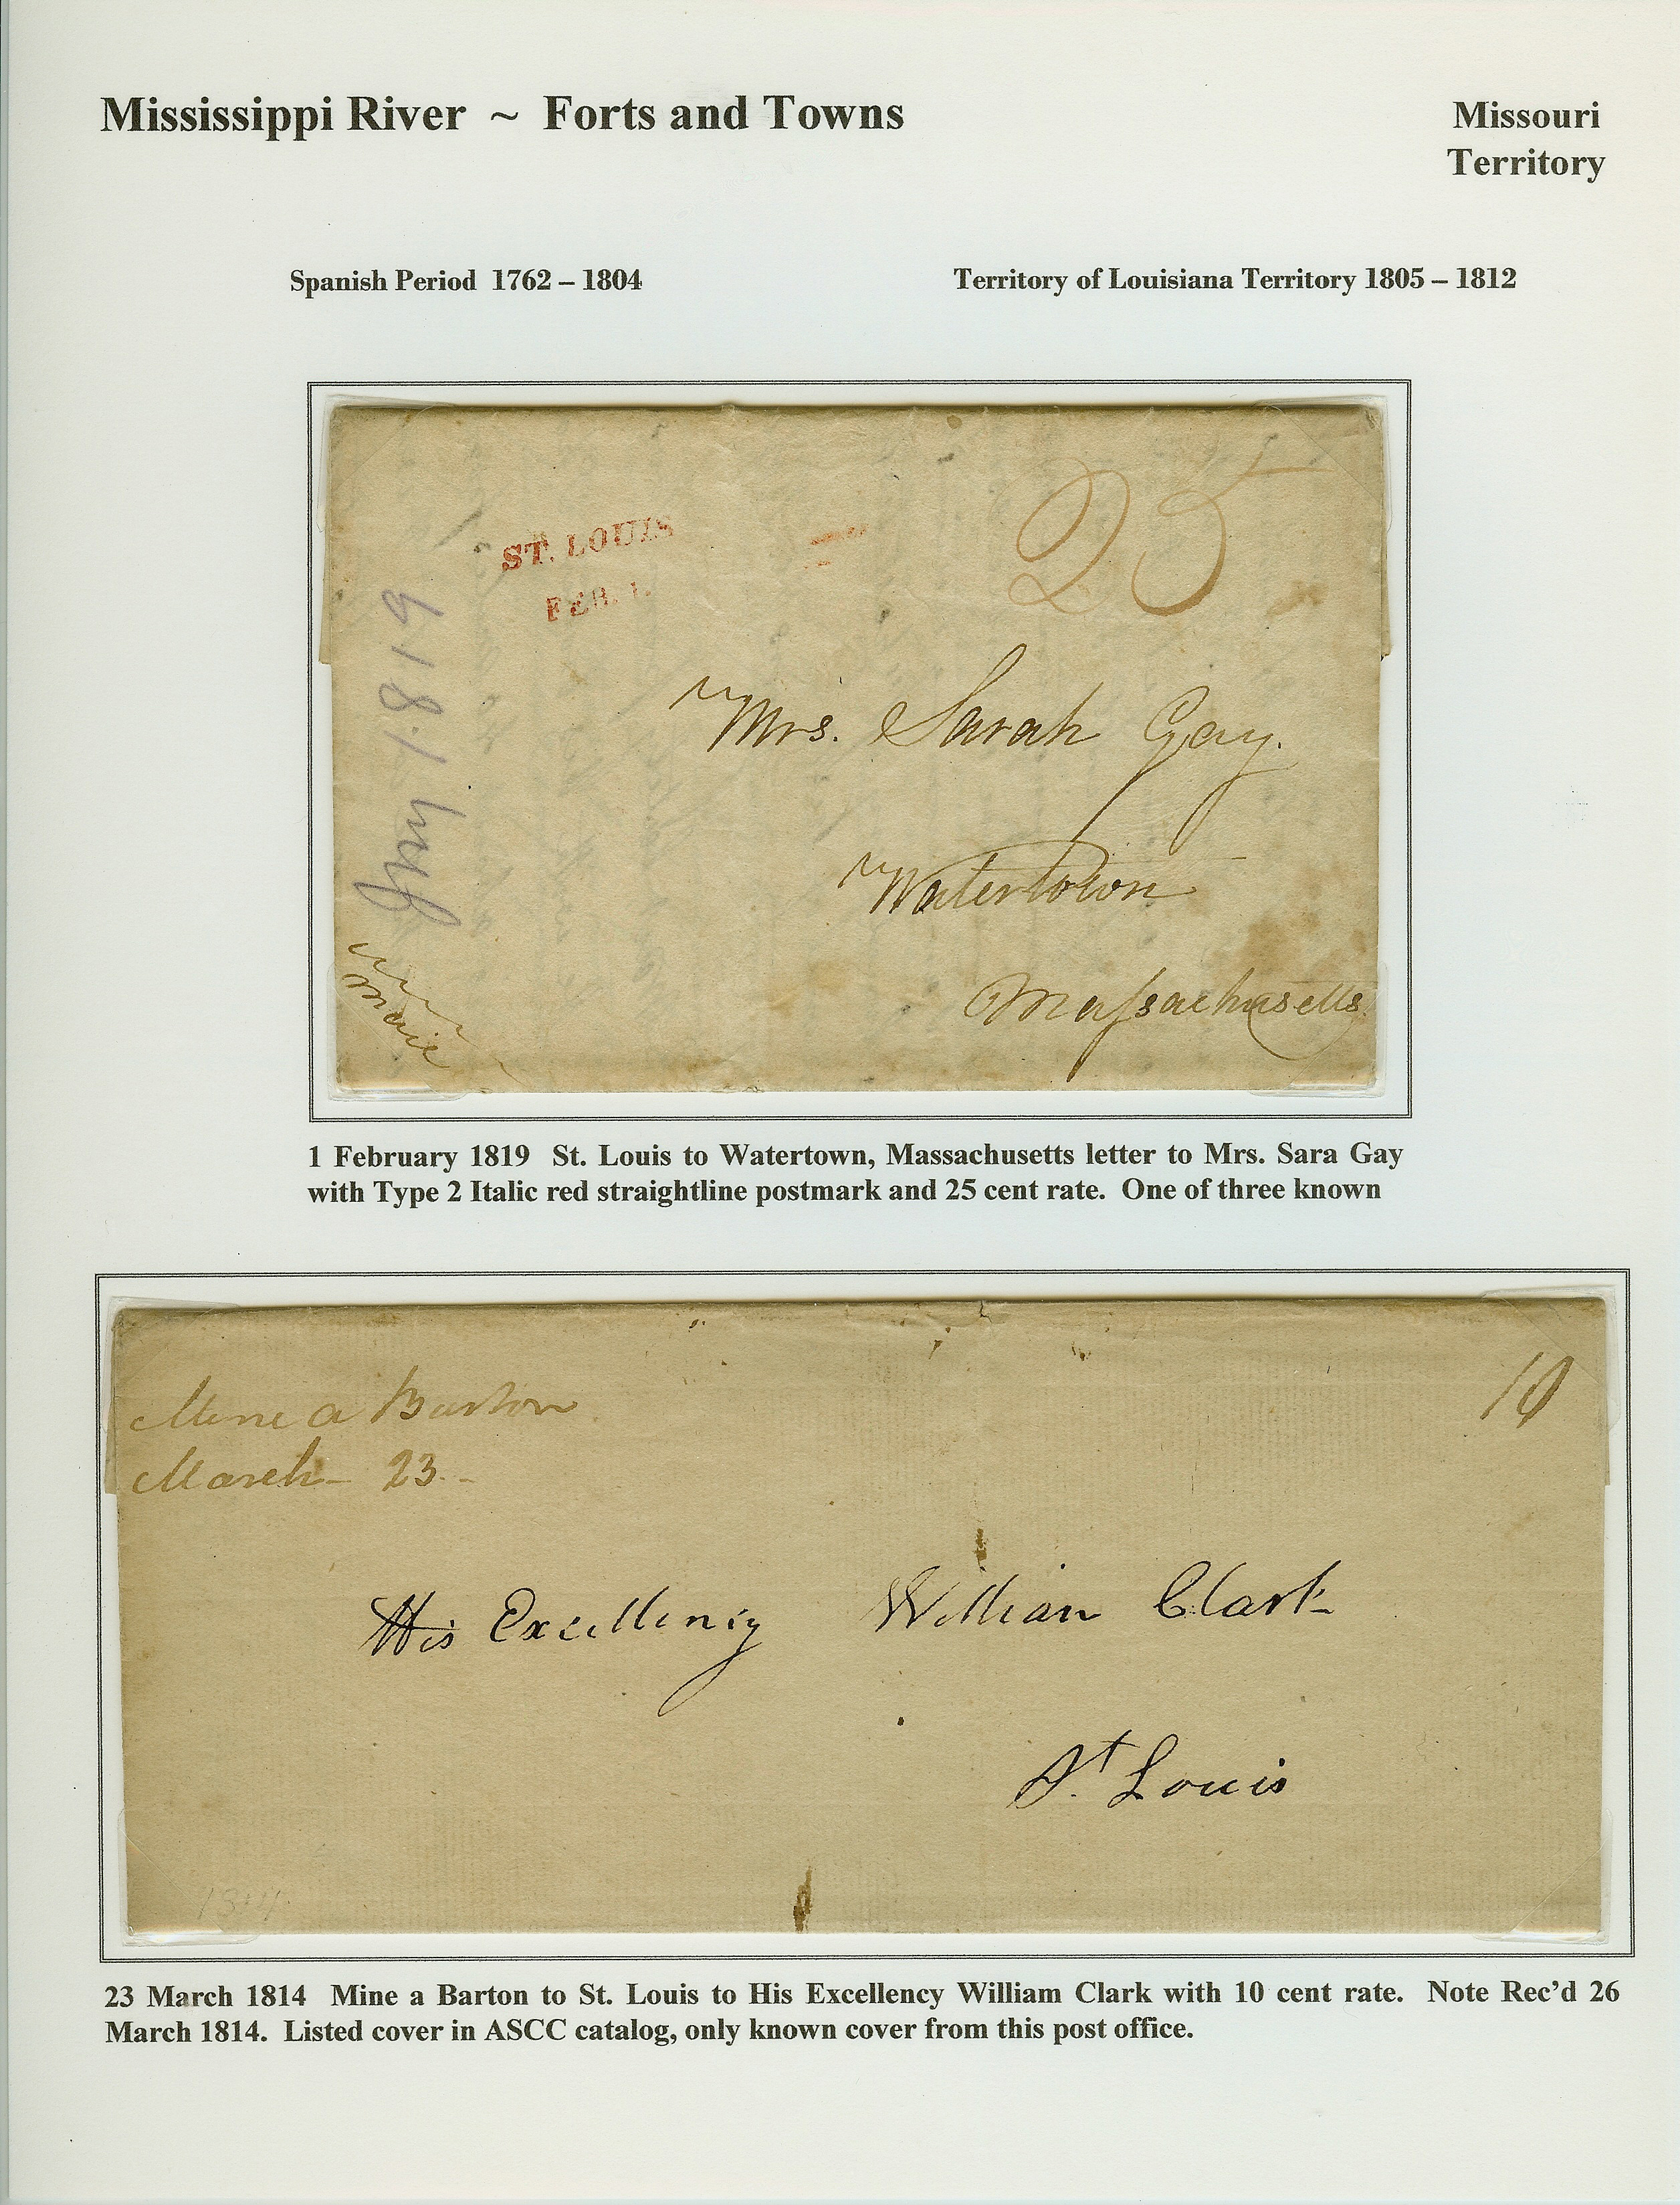 Mississippi River ~ Forts and Towns
Missouri
Territory
Spanish Period 1762 – 1804
Territory of Louisiana Territory 1805 – 1812
ST. LOUIS
FEB. 1.
25
1819
Mrs. Sarah Gay.
Watertown
Massachusetts
Mail
1 February 1819 St. Louis to Watertown, Massachusetts letter to Mrs. Sara Gay
with Type 2 Italic red straightline postmark and 25 cent rate. One of three known
Mine a Burton
March 23
10
His Excellency William Clark
St. Louis
23 March 1814 Mine a Barton to St. Louis to His Excellency William Clark with 10 cent rate. Note Rec'd 26
March 1814. Listed cover in ASCC catalog, only known cover from this post office.